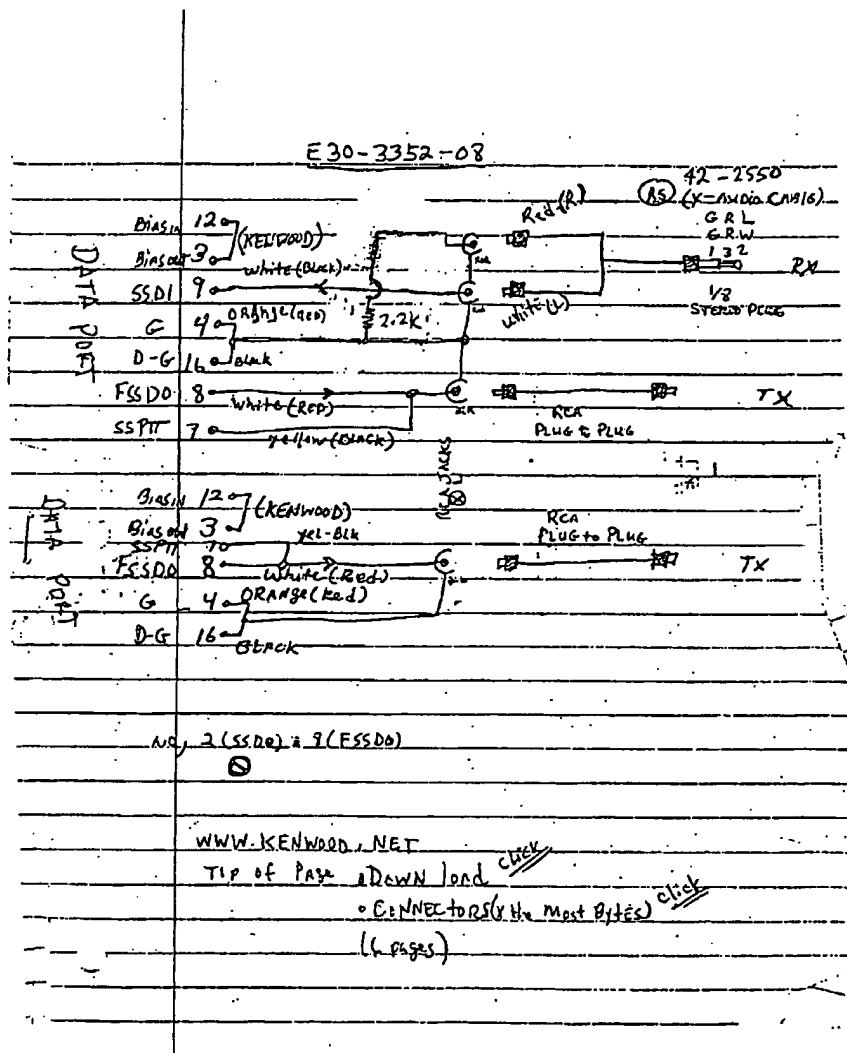 E30-3352-08
42-2550
RS (Y=AUDIO CABLE)
G R L
G R W
1 3 2
RX
1/8
STEREO PLUG
Red (R)
White (L)
DATA PORT
Bias in 12
(KENWOOD)
Bias out 3
White (Black)
SSDI 9
G 4 ORANGE (RED)
2.2K
D-G 16 Black
FSSDO 8
White (RED)
SSPTT 7
yellow (BLACK)
RCA
PLUG to PLUG
TX
RCA JACKS
DATA PORT
Bias in 12
(KENWOOD)
Bias out 3
SSPTT 7
yel-Blk
FSSDO 8
White (Red)
RCA
PLUG to PLUG
TX
G 4 ORANGE (Red)
D-G 16
BLACK
NO, 2 (SSDO) 8 (FSSDO)
WWW.KENWOOD.NET
TIP of PAGE DOWN load click
• CONNECTORS (Y He Most Bytes) click
(6 pages)